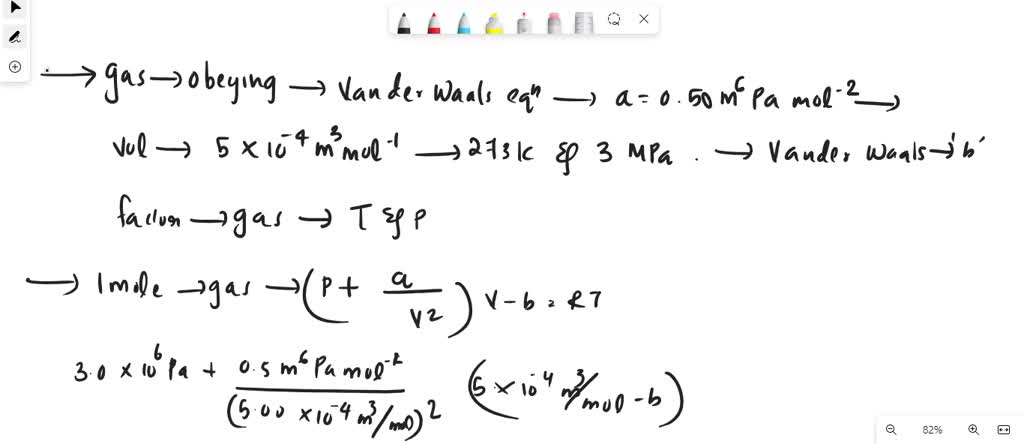 → gas → obeying → Vander Waals eqⁿ → a = 0.50 m⁶ Pa mol⁻² →
Vol → 5 × 10⁻⁴ m³ mol⁻¹ → 273k & 3 MPa . → Vander Waals → 'b'
→ gas → T & P
→ 1 mole → gas → (P + a/V2) V - b = RT
3.0 × 10⁶ Pa + 0.5 m⁶ Pa mol⁻²/(5.00 × 10⁻⁴ m³/mol)² (5 × 10⁻⁴ m³/mol - b)
82%